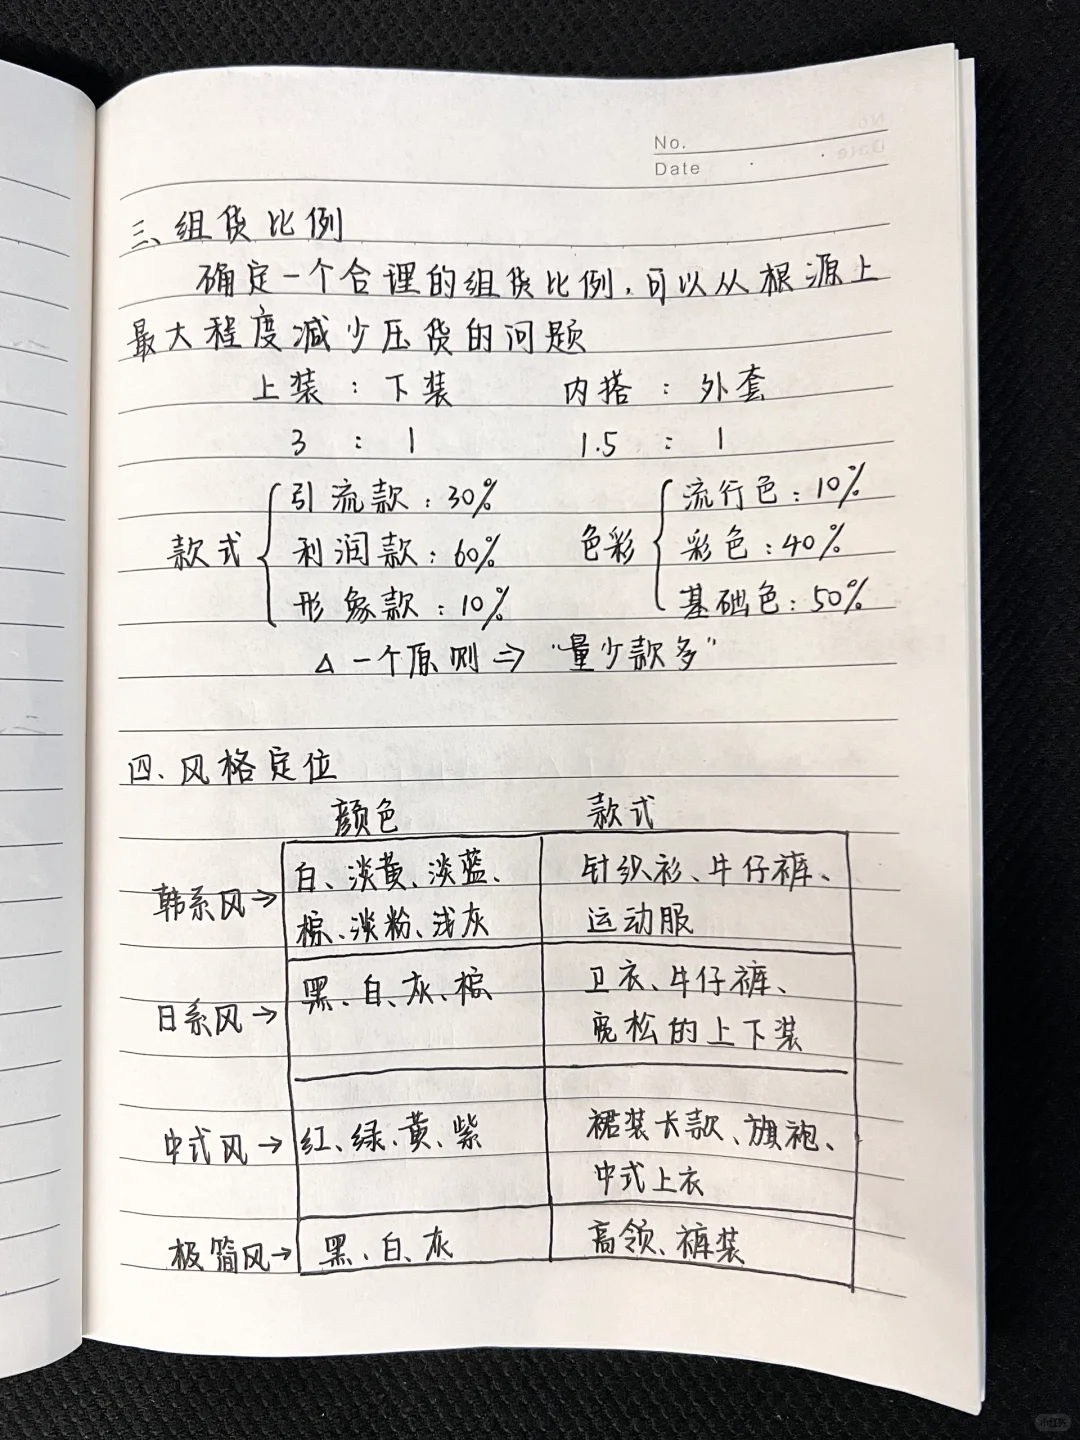 No.
Date
三、组货比例
确定一个合理的组货比例,可以从根源上
最大程度减少压货的问题
上装 : 下装 内搭 : 外套
3 : 1 1.5 : 1
引流款:30% 流行色:10%
款式 利润款:60% 色彩 彩色:40%
形象款:10% 基础色:50%
△ 一个原则 ⇒ “量少款多”
四、风格定位
颜色 款式
韩系风→ 白、淡黄、淡蓝、 针织衫、牛仔裤、
棕、淡粉、浅灰 运动服
日系风→ 黑、白、灰、棕 卫衣、牛仔裤、
宽松的上下装
中式风→ 红、绿、黄、紫 裙装长款、旗袍、
中式上衣
极简风→ 黑、白、灰 高领、裤装
小红书